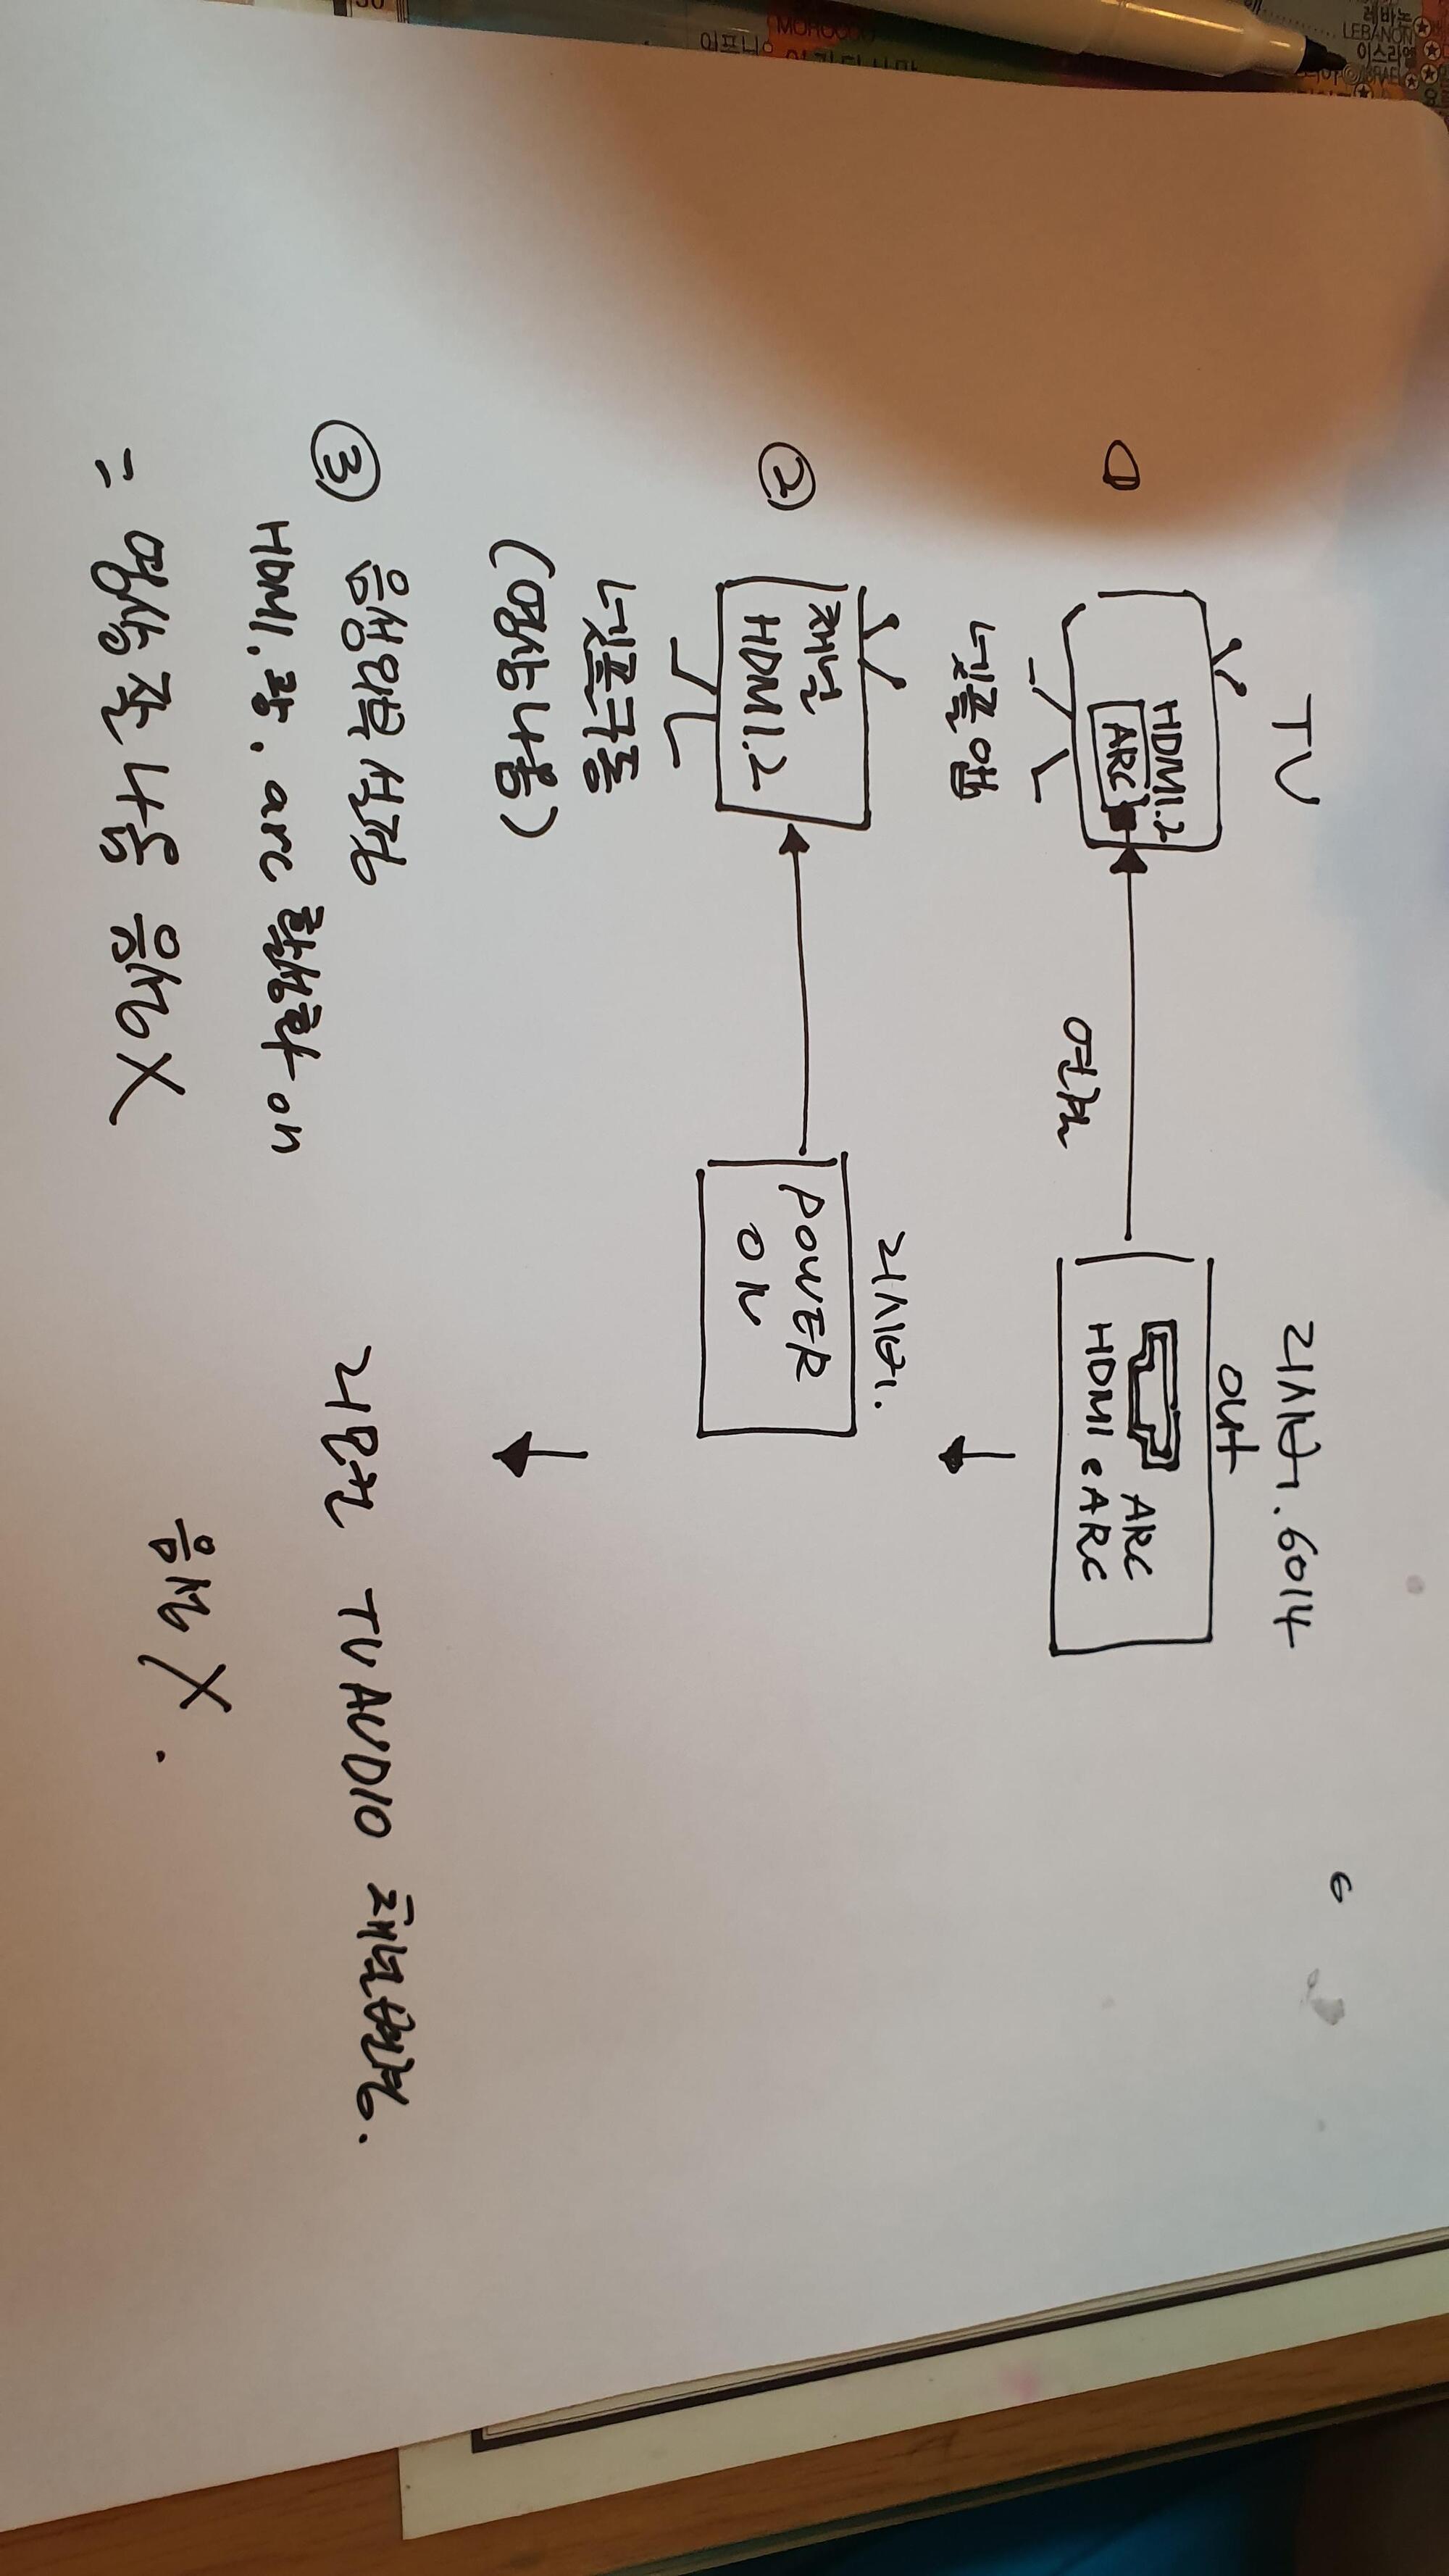 TV
리시버. 6014
6
①
HDMI.2
ARC
out
ARC
HDMI eARC
연결
넷플앱
②
채널
HDMI.2
리시버.
POWER
ON
넷플구동
(영상나옴)
③ 음성외부설정
HDMI. 광. arc 활성화 on
= 영상 잘 나옴 음성X
리모컨 TV AUDIO 채널변경.
음성 X.
MOROCCO
이프니
레바논
LEBANON
이스라엘
ISRAEL